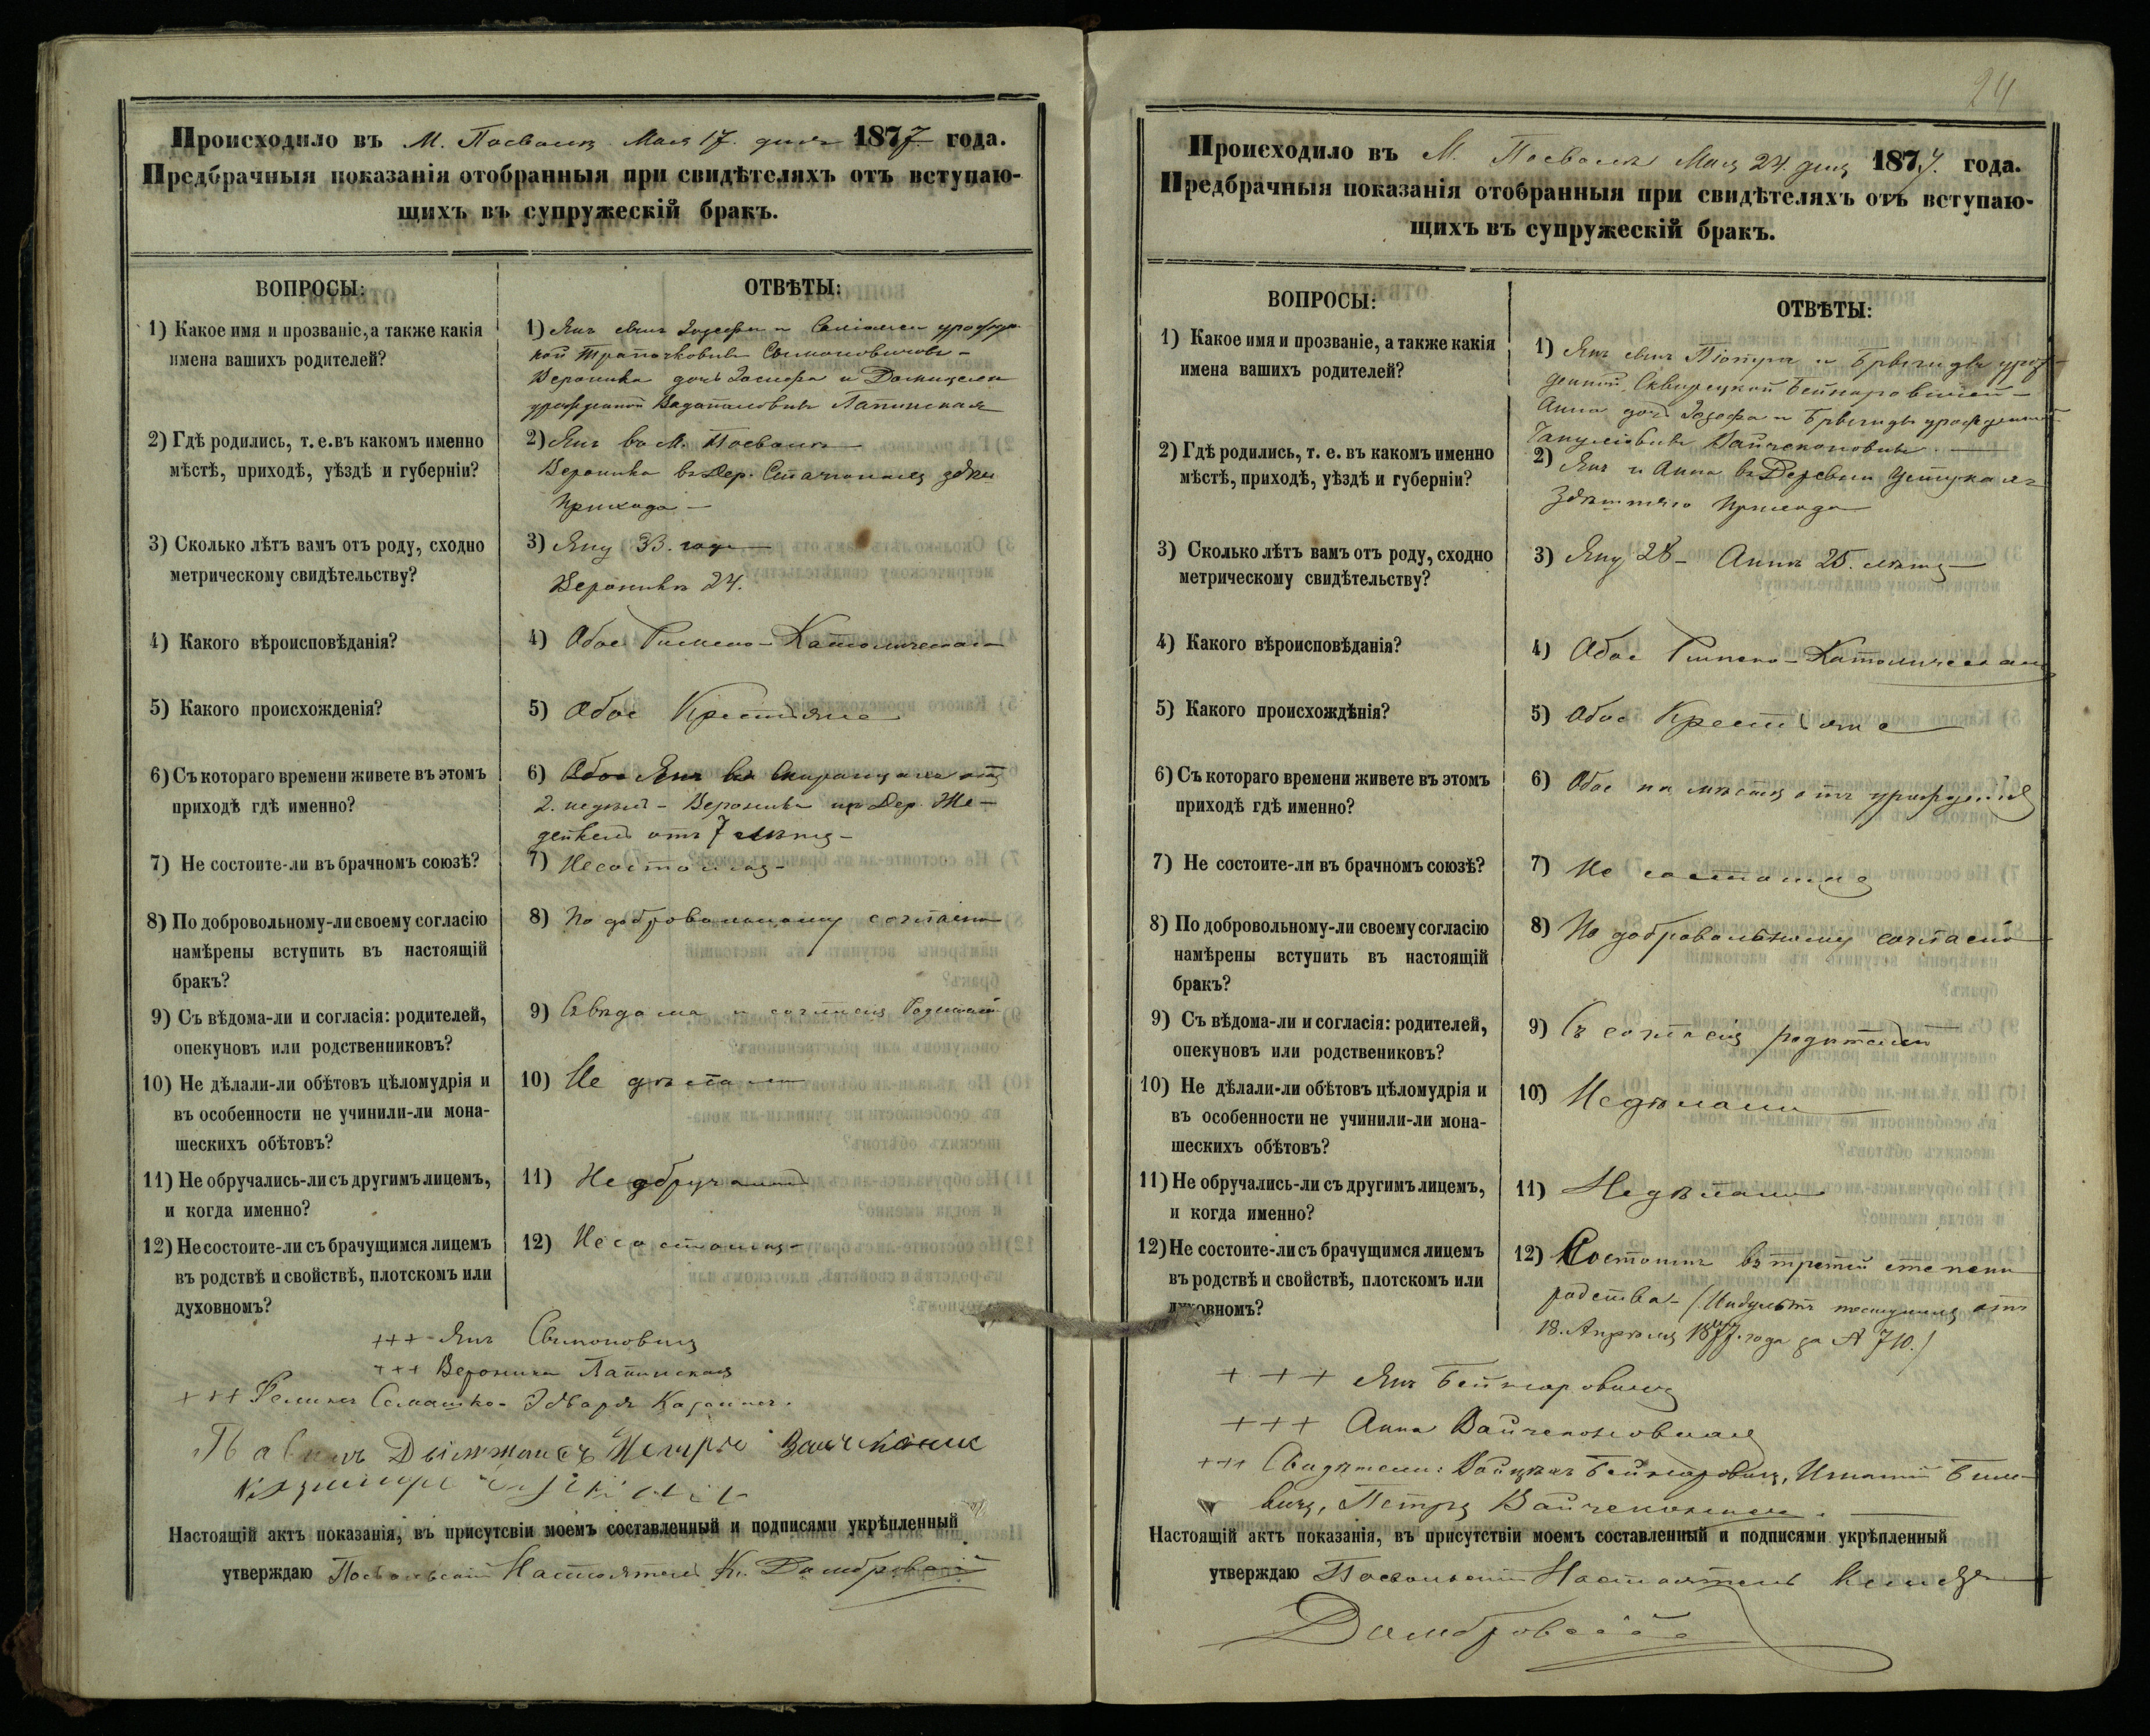 Происходило въ М. Посволь Мая 17. дня 1877 года.
Предбрачныя показанія отобранныя при свидѣтеляхъ отъ вступаю-
щихъ въ супружескій бракъ.
ВОПРОСЫ:
ОТВѢТЫ:
1) Какое имя и прозваніе, а также какія
имена вашихъ родителей?
1) Янъ сынъ
Вероника дочь Іосифа и
урожденной Лапинская
2) Гдѣ родились, т. е. въ какомъ именно
мѣстѣ, приходѣ, уѣздѣ и губерніи?
2) Янъ въ М. Посволь
Вероника въ Дер.
прихода
3) Сколько лѣтъ вамъ отъ роду, сходно
метрическому свидѣтельству?
3) Яну 33. года
Вероникѣ 24.
4) Какого вѣроисповѣданія?
4) Обое Римско-Католическаго
5) Какого происхожденія?
5) Обое Крестьяне
6) Съ котораго времени живете въ этомъ
приходѣ гдѣ именно?
6) Обое Янъ въ отъ
2. недѣль - Вероника въ Дер. Же-
отъ 7 лѣтъ
7) Не состоите-ли въ брачномъ союзѣ?
7) Несостоимъ
8) По добровольному-ли своему согласію
намѣрены вступить въ настоящій
бракъ?
8) По добровольному согласію
9) Съ вѣдома-ли и согласія: родителей,
опекуновъ или родственниковъ?
9) Съ вѣдома и согласія Родителей
10) Не дѣлали-ли обѣтовъ цѣломудрія и
въ особенности не учинили-ли мона-
шескихъ обѣтовъ?
10) Не дѣлали
11) Не обручались-ли съ другимъ лицемъ,
и когда именно?
11) Не обручались
12) Не состоите-ли съ брачущимся лицемъ
въ родствѣ и свойствѣ, плотскомъ или
духовномъ?
12) Несостоимъ
+++ Янъ Симоновичъ
+++ Вероника Лапинская
+++ Феликсъ Семашко
Настоящій актъ показанія, въ присутсвіи моемъ составленный и подписями укрѣпленный
утверждаю Посвольскій Настоятель Кс. Домбровскій
24
Происходило въ М. Посволь Мая 24. дня 1877. года.
Предбрачныя показанія отобранныя при свидѣтеляхъ отъ вступаю-
щихъ въ супружескій бракъ.
ВОПРОСЫ:
ОТВѢТЫ:
1) Какое имя и прозваніе, а также какія
имена вашихъ родителей?
1) Янъ сынъ и Бригиды урож-
денной
Анна дочь и Бригиды урожденной
2) Гдѣ родились, т. е. въ какомъ именно
мѣстѣ, приходѣ, уѣздѣ и губерніи?
2) Янъ и Анна въ Деревни
Здѣшняго прихода
3) Сколько лѣтъ вамъ отъ роду, сходно
метрическому свидѣтельству?
3) Яну 28 - Аннѣ 25. лѣтъ
4) Какого вѣроисповѣданія?
4) Обое Римско-Католическаго
5) Какого происхождѣнія?
5) Обое Крестьяне
6) Съ котораго времени живете въ этомъ
приходѣ гдѣ именно?
6) Обое на мѣстѣ отъ урожденія
7) Не состоите-ли въ брачномъ союзѣ?
7) Не состоимъ
8) По добровольному-ли своему согласію
намѣрены вступить въ настоящій
бракъ?
8) По добровольному согласію
9) Съ вѣдома-ли и согласія: родителей,
опекуновъ или родствениковъ?
9) Съ согласія родителей
10) Не дѣлали-ли обѣтовъ цѣломудрія и
въ особенности не учинили-ли мона-
шескихъ обѣтовъ?
10) Недѣлали
11) Не обручались-ли съ другимъ лицемъ,
и когда именно?
11) Недѣлали
12) Не состоите-ли съ брачущимся лицемъ
въ родствѣ и свойствѣ, плотскомъ или
духовномъ?
12) Состоимъ въ третей степени
родства - (Индультъ отъ
18. Апрѣля 1877. года за № 710.)
+++ Янъ Бейнаровичъ
+++ Анна
+++ Свидѣтели: Бейнаровичъ, Игнатій Биле-
вичъ, Петръ
Настоящій актъ показанія, въ присутствіи моемъ составленный и подписями укрѣпленный
утверждаю Посвольскій Настоятель Ксендзъ
Домбровскій